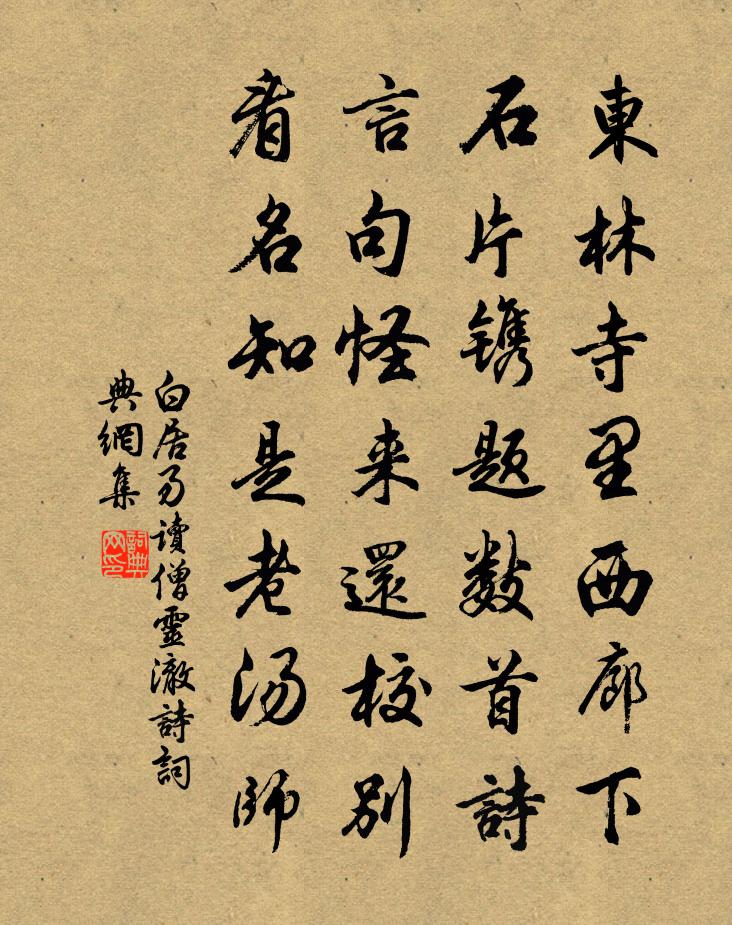 東林寺里西廊下
石片镌題数首詩
言句怪来還校別
看名知是老湯師
白居易讀僧靈澈詩詞
典網集
詞典網印